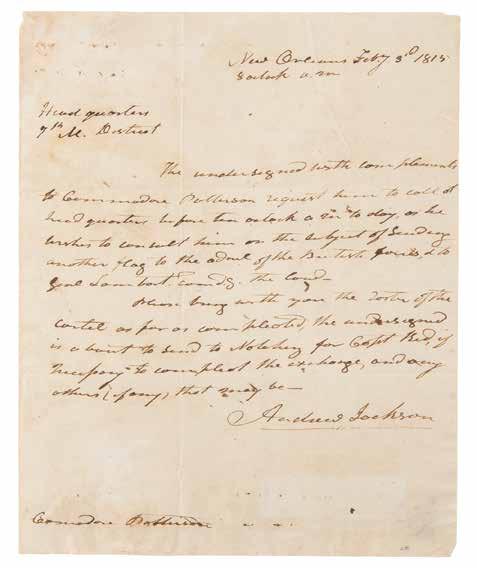 New Orleans Feby 3d 1815
8 oclock a.m
Head quarters
7th M. District
The undersigned with complements
to Commodore Patterson request him to call at
head quarters before ten oclock a m to day, as he
wishes to consult him on the subject of Sending
another flag to the adml of the British forces, & to
Genl Lambert Comdg. the land—
Please bring with you the roster of the
cartel as far as compleated, the undersigned
is about to send to Notchez for Capt Bird, if
Necessary to compleat the exchange, and any
others (if any) that may be—
Andrew Jackson
Comodore Patterson